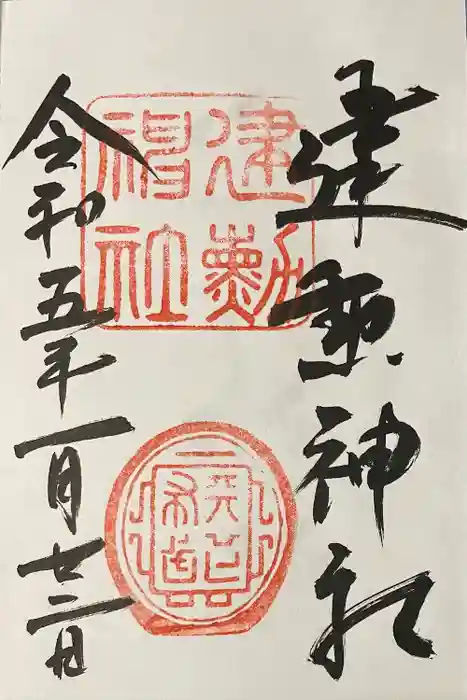 建勲神社
令和五年一月廿二日
建勲
神社
天下
布武